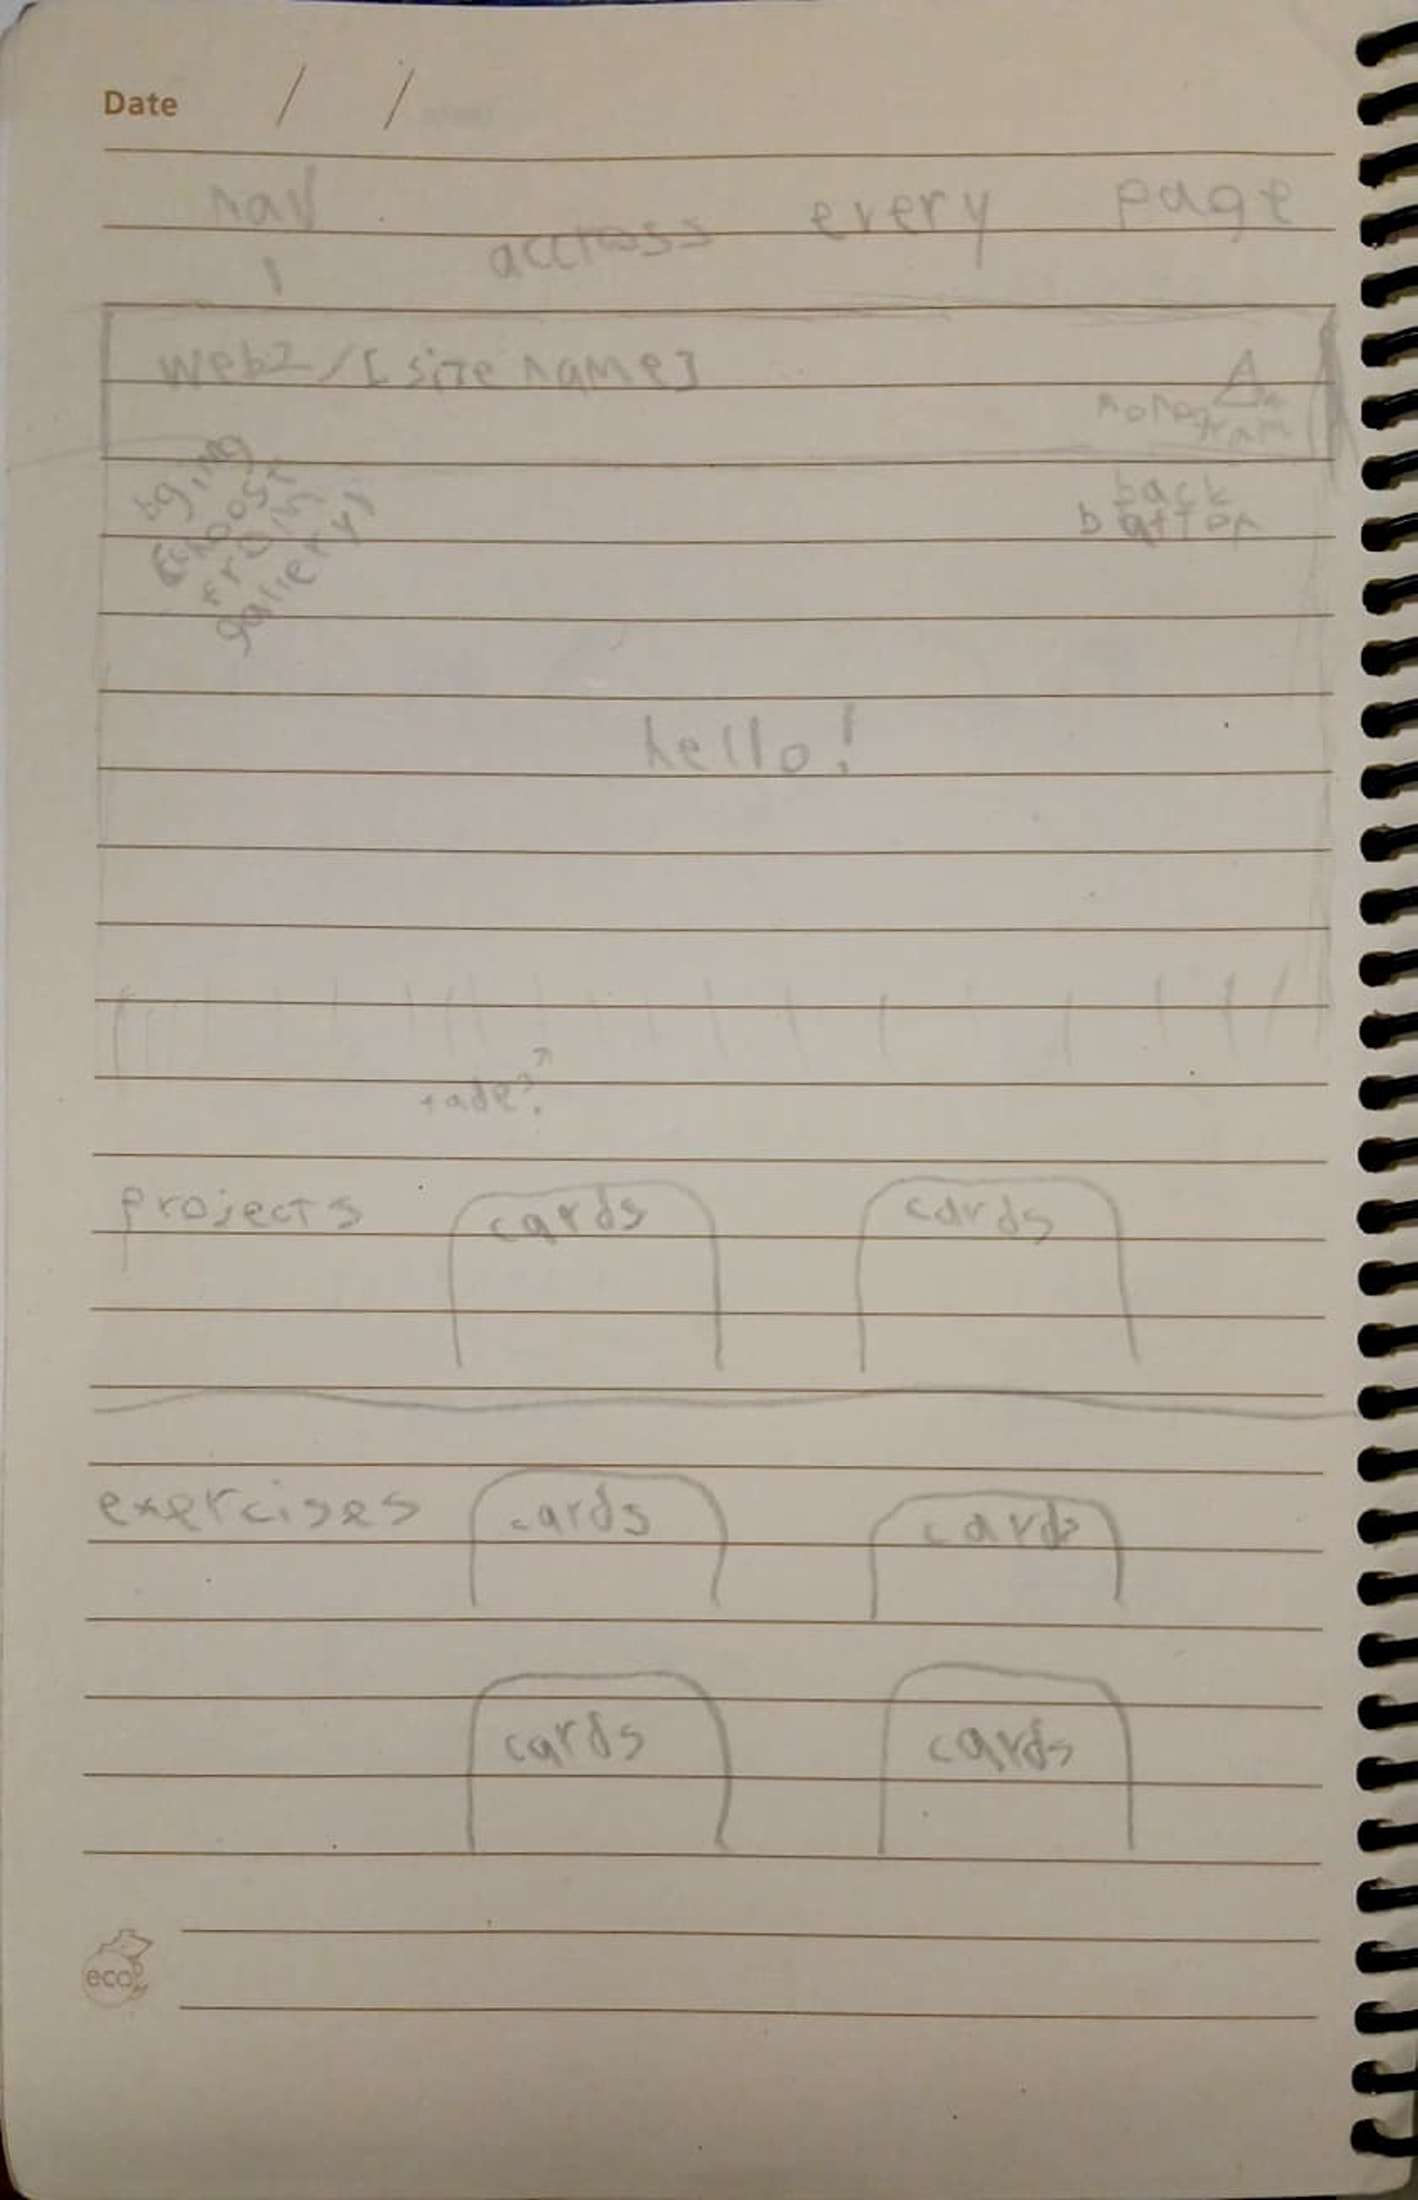 Date / /
nav accross every page
web2/[site name]
A
monogram
bg img
(choose
from
gallery)
back
button
hello!
fade?
projects cards cards
exercises cards cards
cards cards
eco